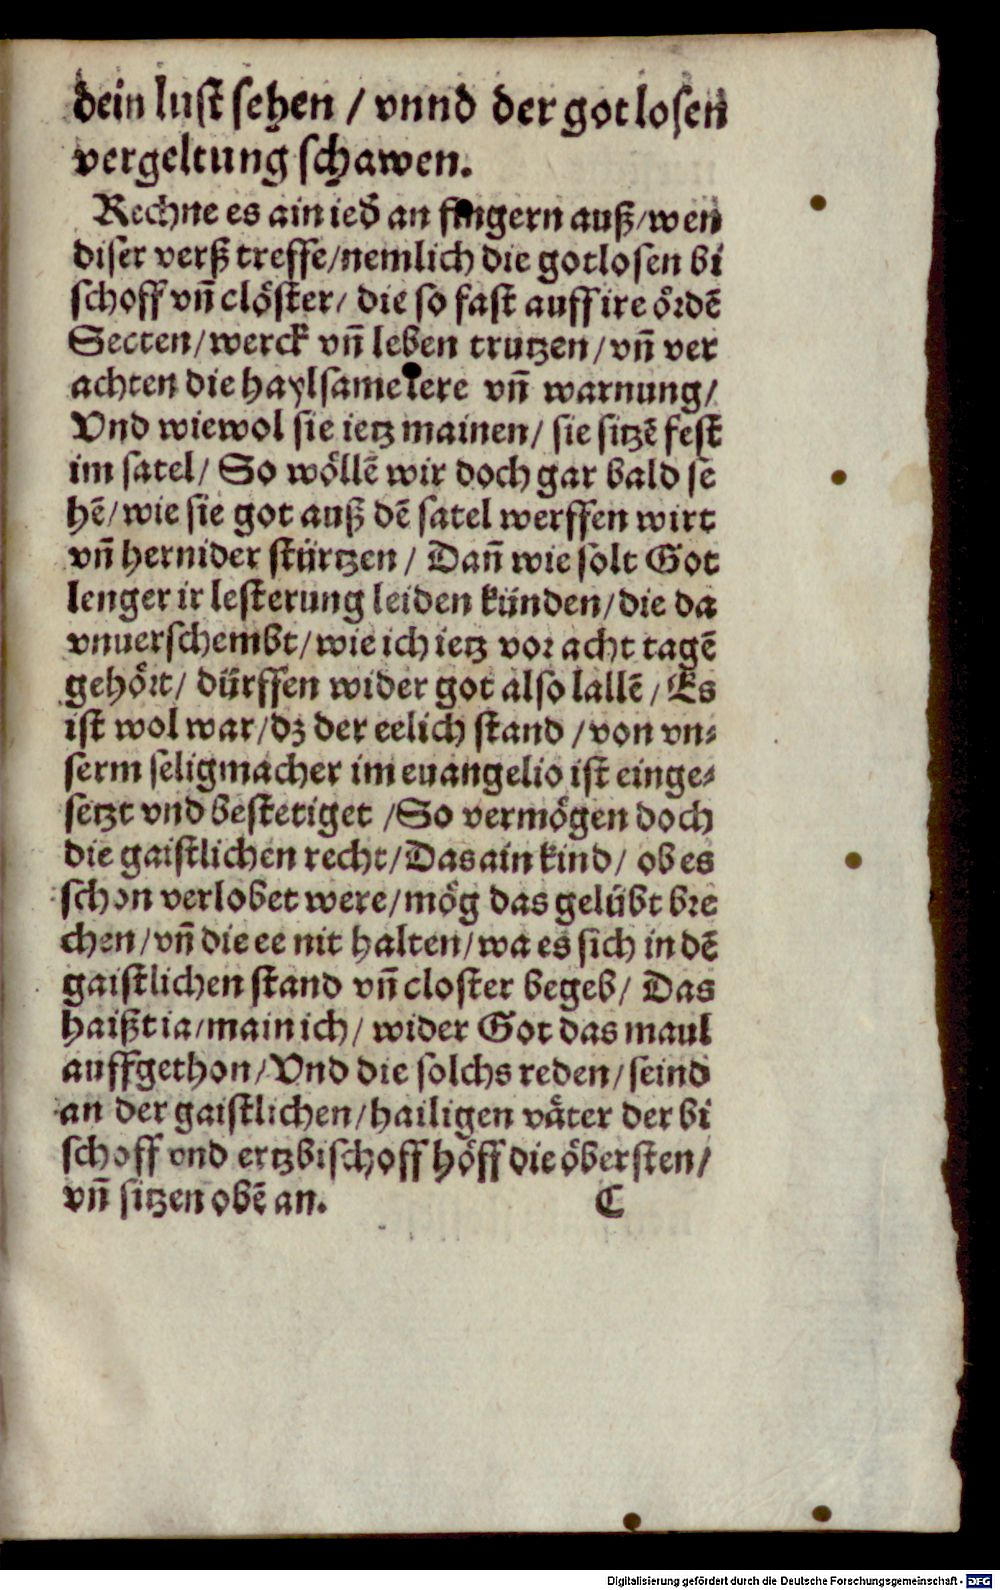 dein lust sehen / vnnd der gotlosen
vergeltung schawen.
Rechne es ain ied an fingern auß/wen
diser verß treffe/nemlich die gotlosen bi
schoff vñ clöster/ die so fast auff ire ördē
Secten/werck vñ leben trutzen/vñ ver
achten die haylsame lere vñ warnung/
Vnd wiewol sie ietz mainen/ sie sitzē fest
im satel/ So wöllē wir doch gar bald se
hē/wie sie got auß dē satel werffen wirt
vñ hernider stürtzen / Dañ wie solt Got
lenger ir lesterung leiden künden/die da
vnuerschembt/wie ich ietz vor acht tagē
gehört/ dürffen wider got also lallē/Es
ist wol war/dz der eelich stand /von vn⸗
serm seligmacher im euangelio ist einge⸗
setzt vnd bestetiget /So vermögen doch
die gaistlichen recht/Das ain kind/ ob es
schon verlobet were/mög das gelübt bre
chen/vñ die ee nit halten/wa es sich in dē
gaistlichen stand vñ closter begeb/ Das
haißt ia/main ich/ wider Got das maul
auffgethon/Vnd die solchs reden/seind
an der gaistlichen/hailigen väter der bi
schoff vnd ertzbischoff höff die öbersten/
vñ sitzen obē an. C
Digitalisierung gefördert durch die Deutsche Forschungsgemeinschaft - DFG